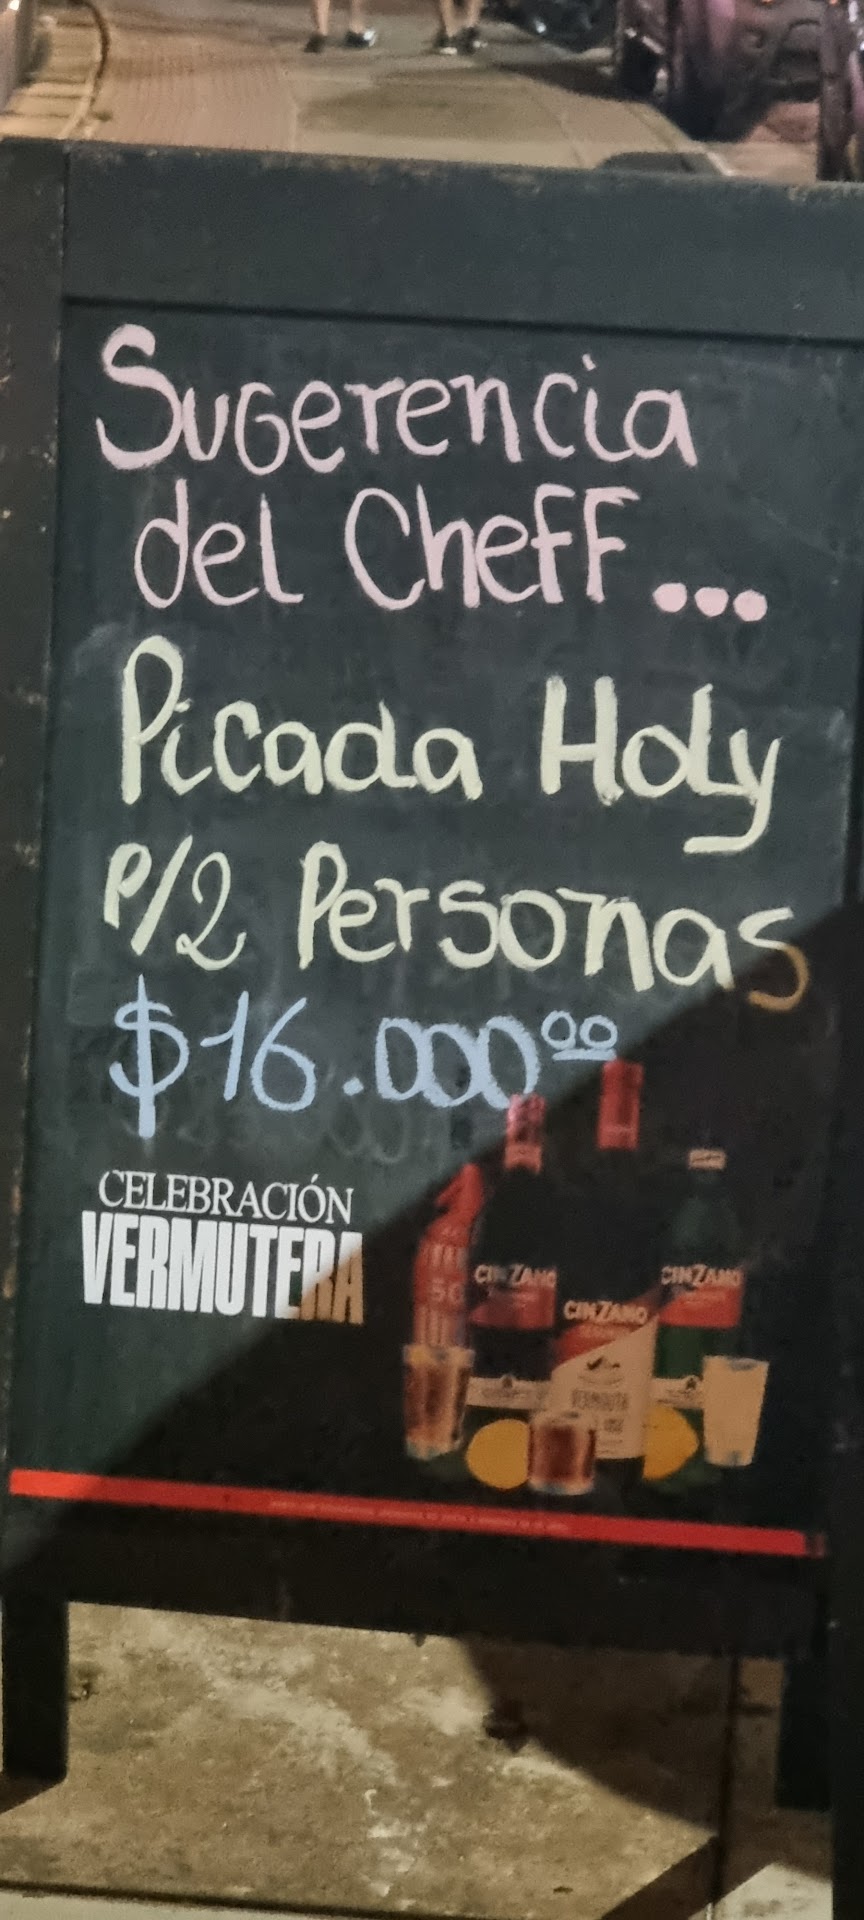 Sugerencia
del Cheff...
Picada Holy
P/2 Personas
$16.000⁰⁰
CELEBRACIÓN
VERMUTERA
CINZANO
CINZANO
CINZANO
VERMOUTH